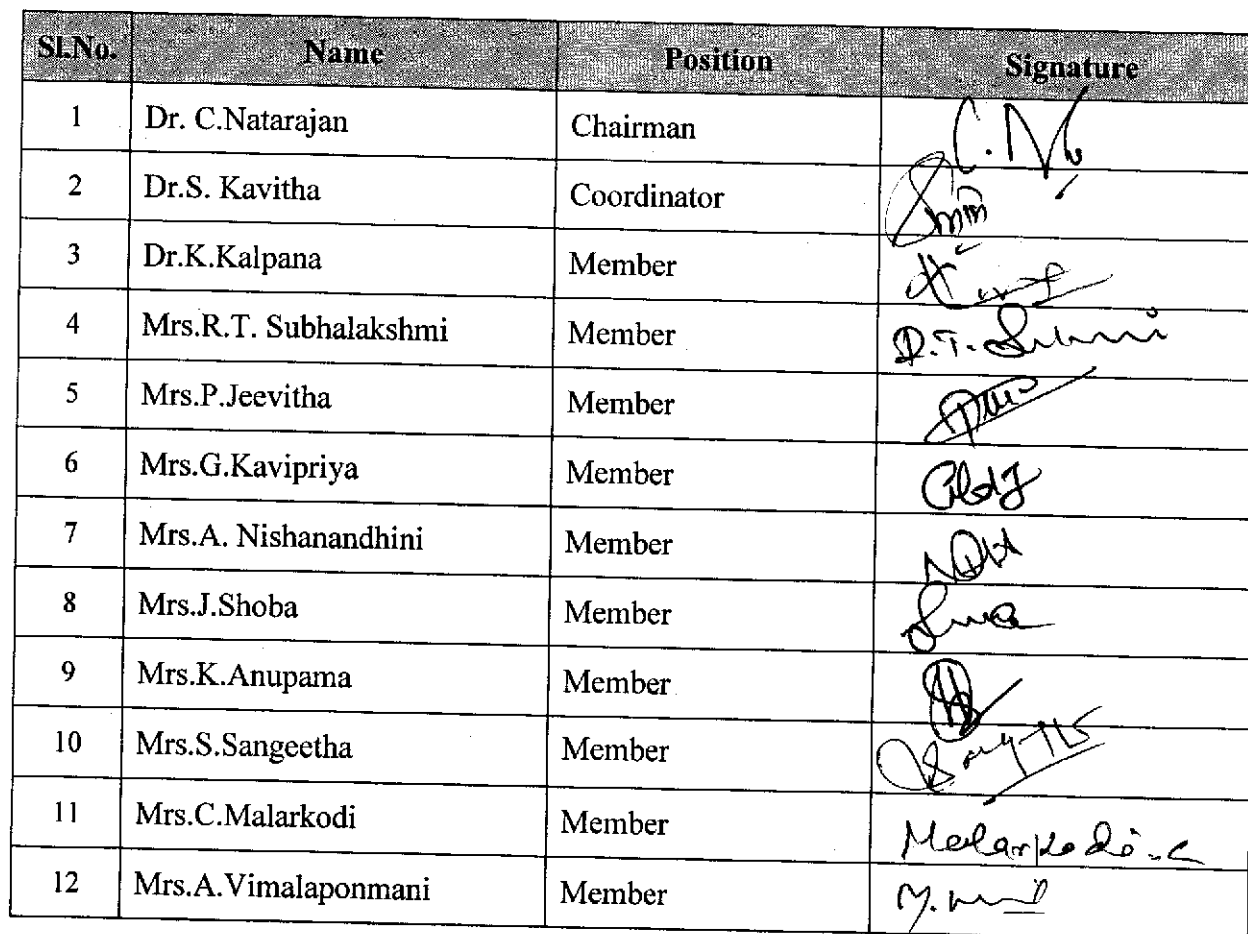 Sl.No. Name Position Signature
1 Dr. C.Natarajan Chairman C.N
2 Dr.S. Kavitha Coordinator
3 Dr.K.Kalpana Member
4 Mrs.R.T. Subhalakshmi Member R.T.
5 Mrs.P.Jeevitha Member
6 Mrs.G.Kavipriya Member
7 Mrs.A. Nishanandhini Member
8 Mrs.J.Shoba Member
9 Mrs.K.Anupama Member
10 Mrs.S.Sangeetha Member
11 Mrs.C.Malarkodi Member Malarkodi.C
12 Mrs.A.Vimalaponmani Member